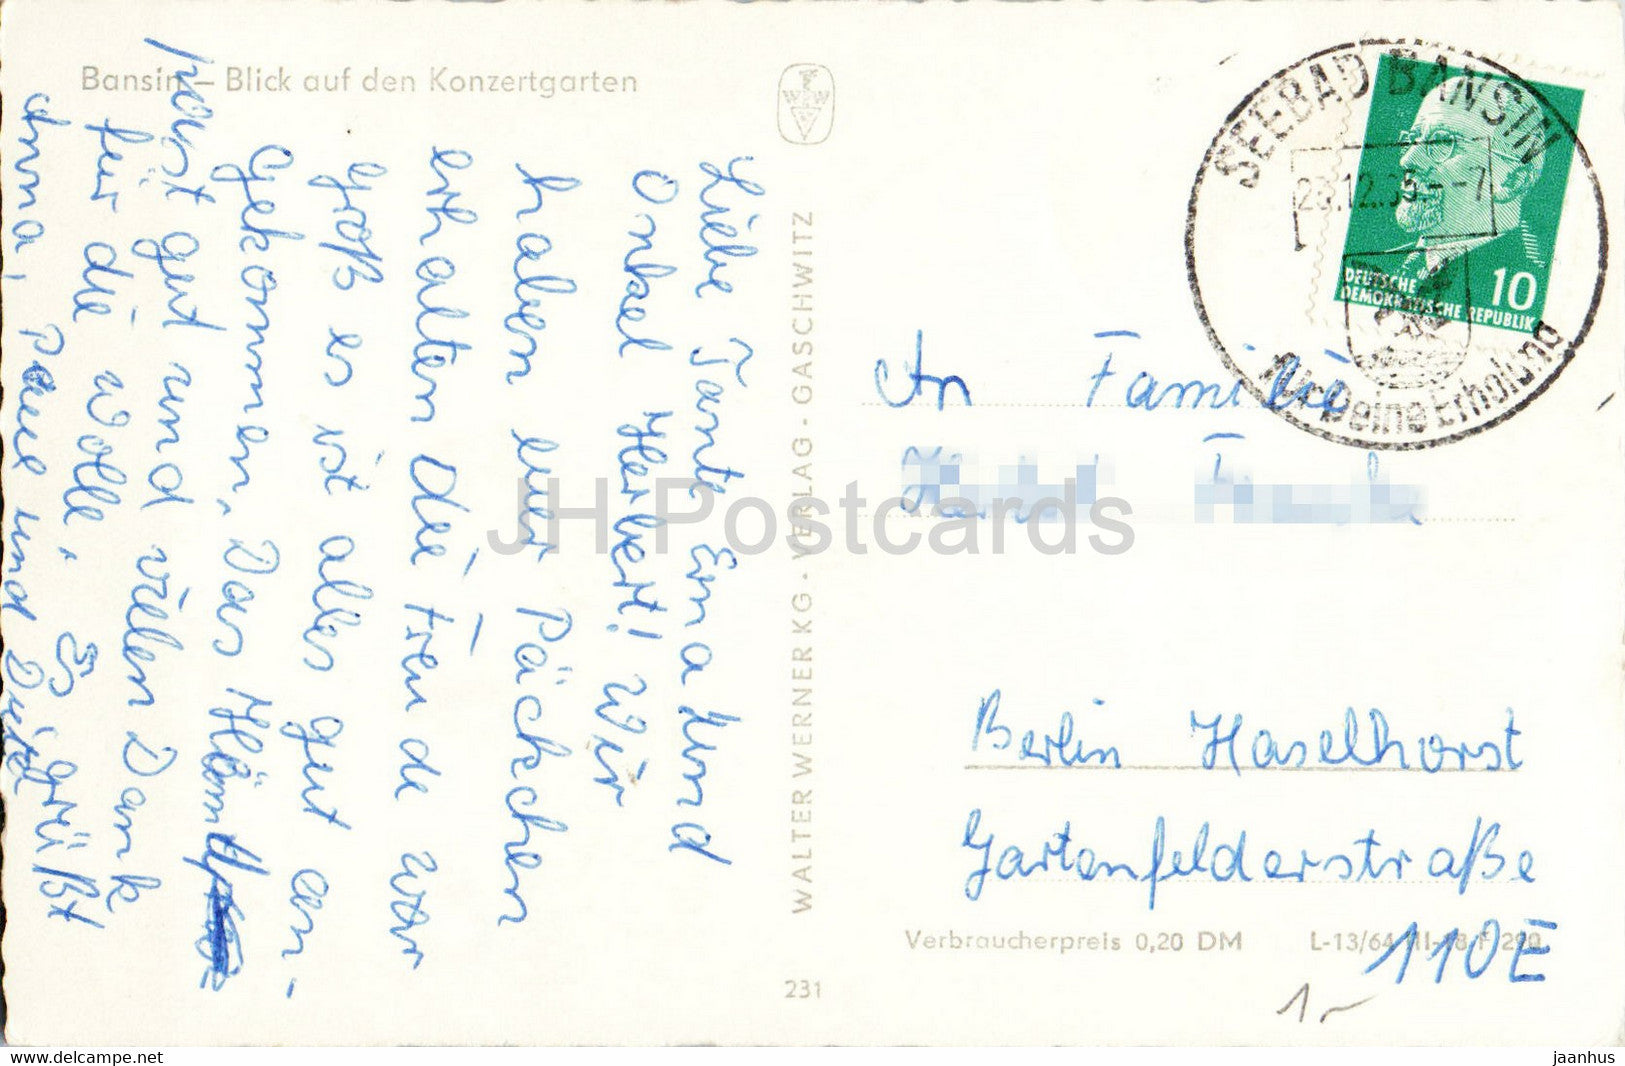 Bansin – Blick auf den Konzertgarten
Liebe Tante Erna und
Onkel Herbert! Wir
haben euer Päckchen
erhalten die Freude war
groß es ist alles gut an-
gekommen, Das
passt gut und vielen Dank
für die Wolle. Es grüßt
Anna, Paul und
WALTER WERNER KG · VERLAG · GASCHWITZ
231
SEEBAD BANSIN
23.12.65 - -7
für Deine Erholung
DEUTSCHE
DEMOKRATISCHE REPUBLIK
10
An Familie
Berlin Haselhorst
Gartenfelderstraße
110E
Verbraucherpreis 0,20 DM
L-13/64
1,-
JH Postcards
www.delcampe.net
jaanhus